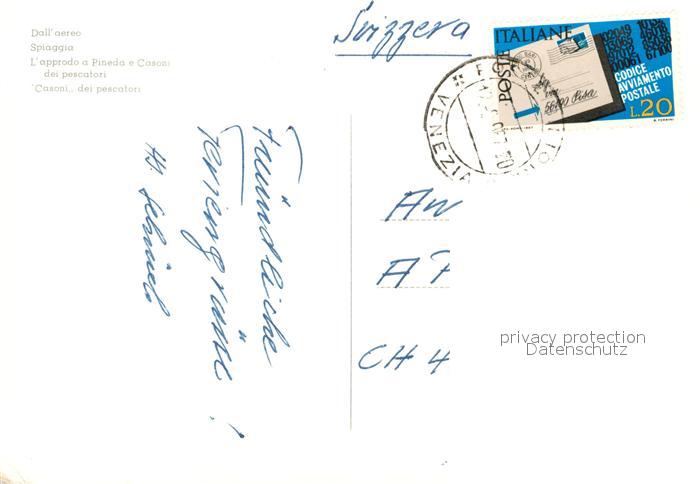 Dall'aereo
Spiaggia
L'approdo a Pineda e Casoni
dei pescatori
"Casoni,, dei pescatori
Svizzera
POSTE ITALIANE
56100 Pisa
CODICE
AVVIAMENTO
POSTALE
L.20
VENEZIA
Freundliche
Feriengrüsse !
CH 4
privacy protection
Datenschutz